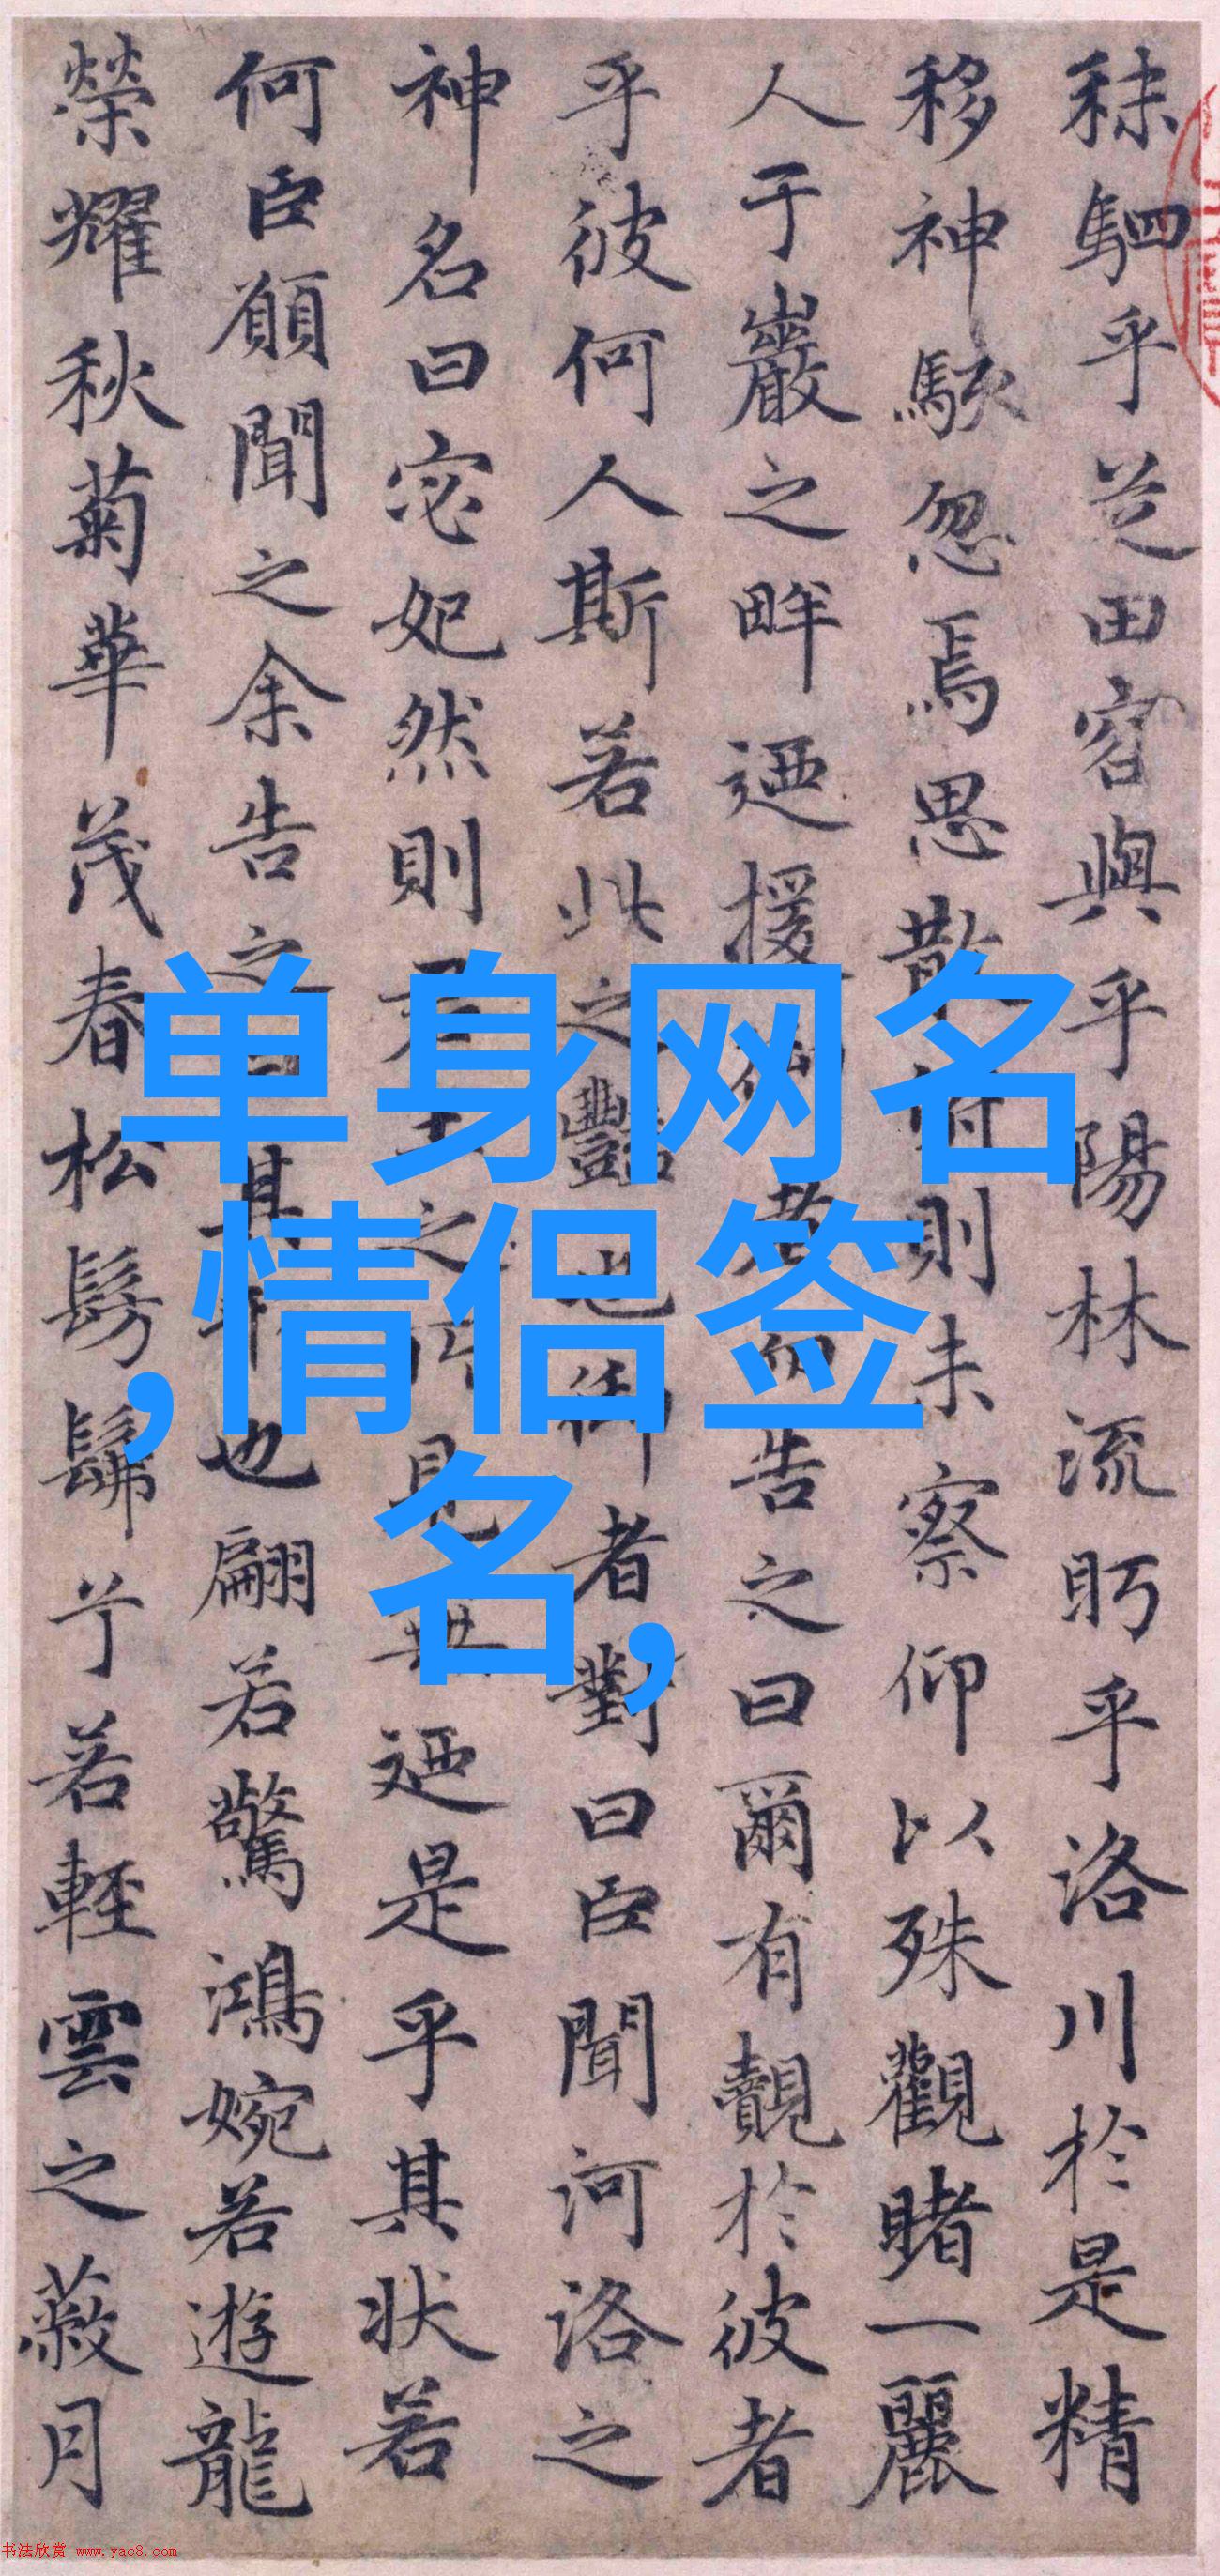 秣駟乎芝田容與乎陽林流眄乎洛川於是精
移神駭忽焉思散則未察仰以殊觀睹一麗
人于巖之畔迺援御者而告之曰爾有覿於彼者
乎彼何人斯若此之豔也御者對曰臣聞河洛之
神名曰宓妃然則君王之所見無迺是乎其狀若
何臣願聞之余告之曰其形也翩若驚鴻婉若遊龍
榮耀秋菊華茂春松髣髴兮若輕雲之蔽月
单身网名
,情侣签
名,
书法欣赏 www.yac8.com